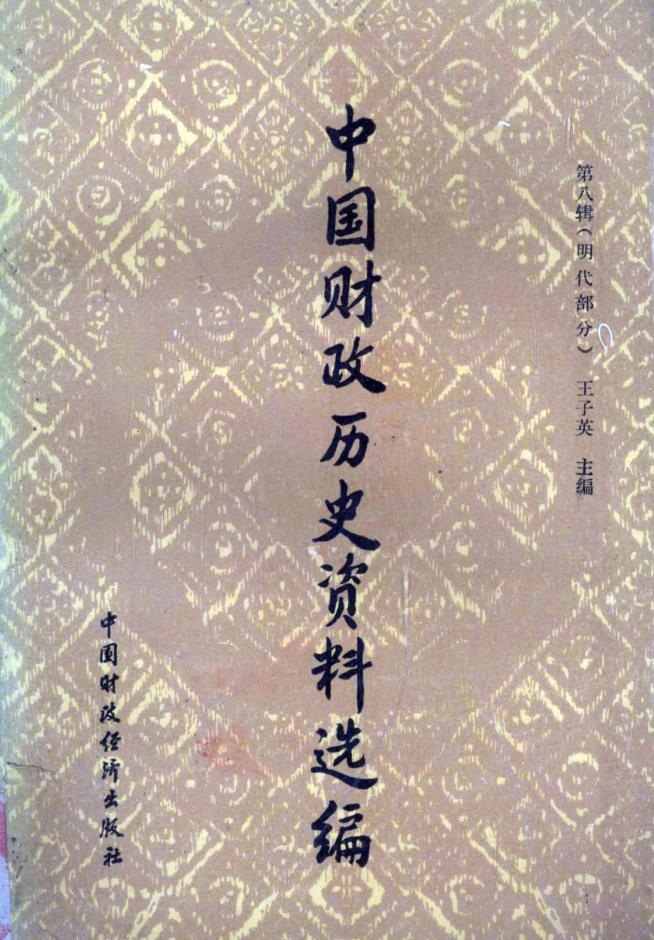 第八辑（明代部分） 王子英 主编
中国财政历史资料选编
中国财政经济出版社